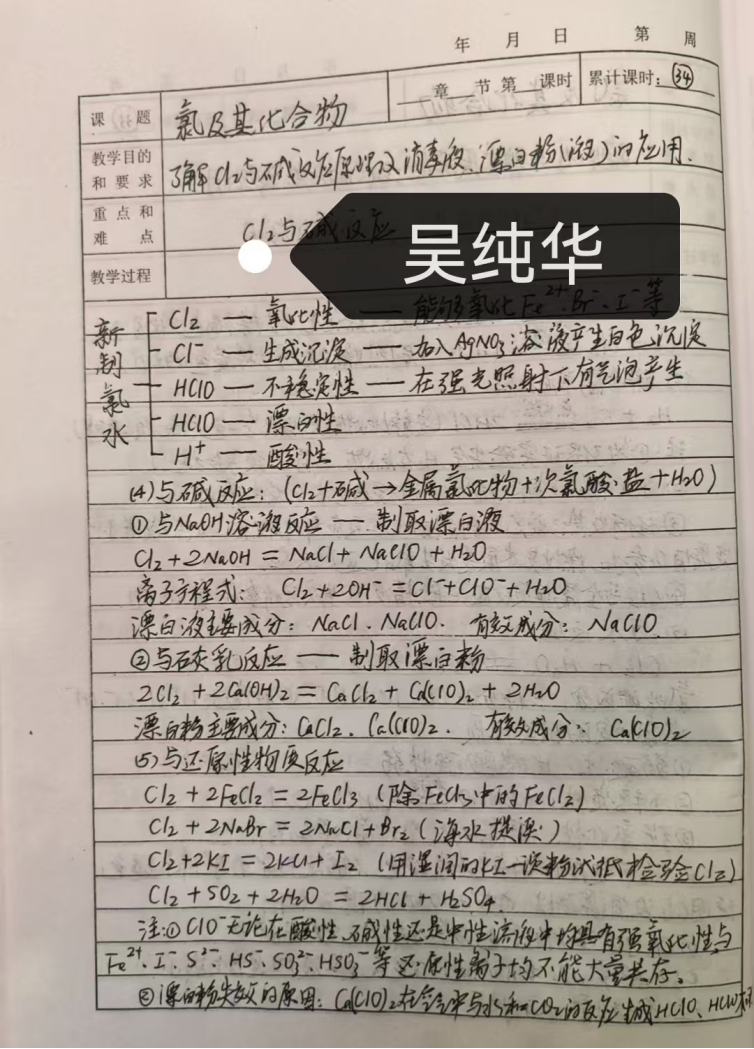 年 月 日 第 周
课 题 氯及其化合物 章 节 第 课时 累计课时：㉞
教学目的和要求 了解Cl₂与碱反应原理及消毒液、漂白粉(液)的应用.
重点和难点 Cl₂与碱反应
吴纯华
教学过程
新制氯水
Cl₂ — 氧化性 — 能够氧化Fe²⁺、Br⁻、I⁻等
Cl⁻ — 生成沉淀 — 加入AgNO₃溶液产生白色沉淀
HClO — 不稳定性 — 在强光照射下有气泡产生
HClO — 漂白性
H⁺ — 酸性
(4)与碱反应：(Cl₂+碱→金属氯化物+次氯酸盐+H₂O)
①与NaOH溶液反应 — 制取漂白液
Cl₂+2NaOH = NaCl+NaClO+H₂O
离子方程式： Cl₂+2OH⁻=Cl⁻+ClO⁻+H₂O
漂白液主要成分：NaCl、NaClO. 有效成分：NaClO
②与石灰乳反应 — 制取漂白粉
2Cl₂+2Ca(OH)₂=CaCl₂+Ca(ClO)₂+2H₂O
漂白粉主要成分：CaCl₂、Ca(ClO)₂. 有效成分：Ca(ClO)₂
(5)与还原性物质反应
Cl₂+2FeCl₂=2FeCl₃ (除FeCl₃中的FeCl₂)
Cl₂+2NaBr=2NaCl+Br₂(海水提溴)
Cl₂+2KI=2KCl+I₂ (用湿润的KI-淀粉试纸检验Cl₂)
Cl₂+SO₂+2H₂O=2HCl+H₂SO₄.
注：①ClO⁻无论在酸性、碱性还是中性溶液中均具有强氧化性与
Fe²⁺、I⁻、S²⁻、HS⁻、SO₃²⁻、HSO₃⁻等还原性离子均不能大量共存。
②漂白粉失效的原因：Ca(ClO)₂在空气中与水和CO₂的反应生成HClO、HClO